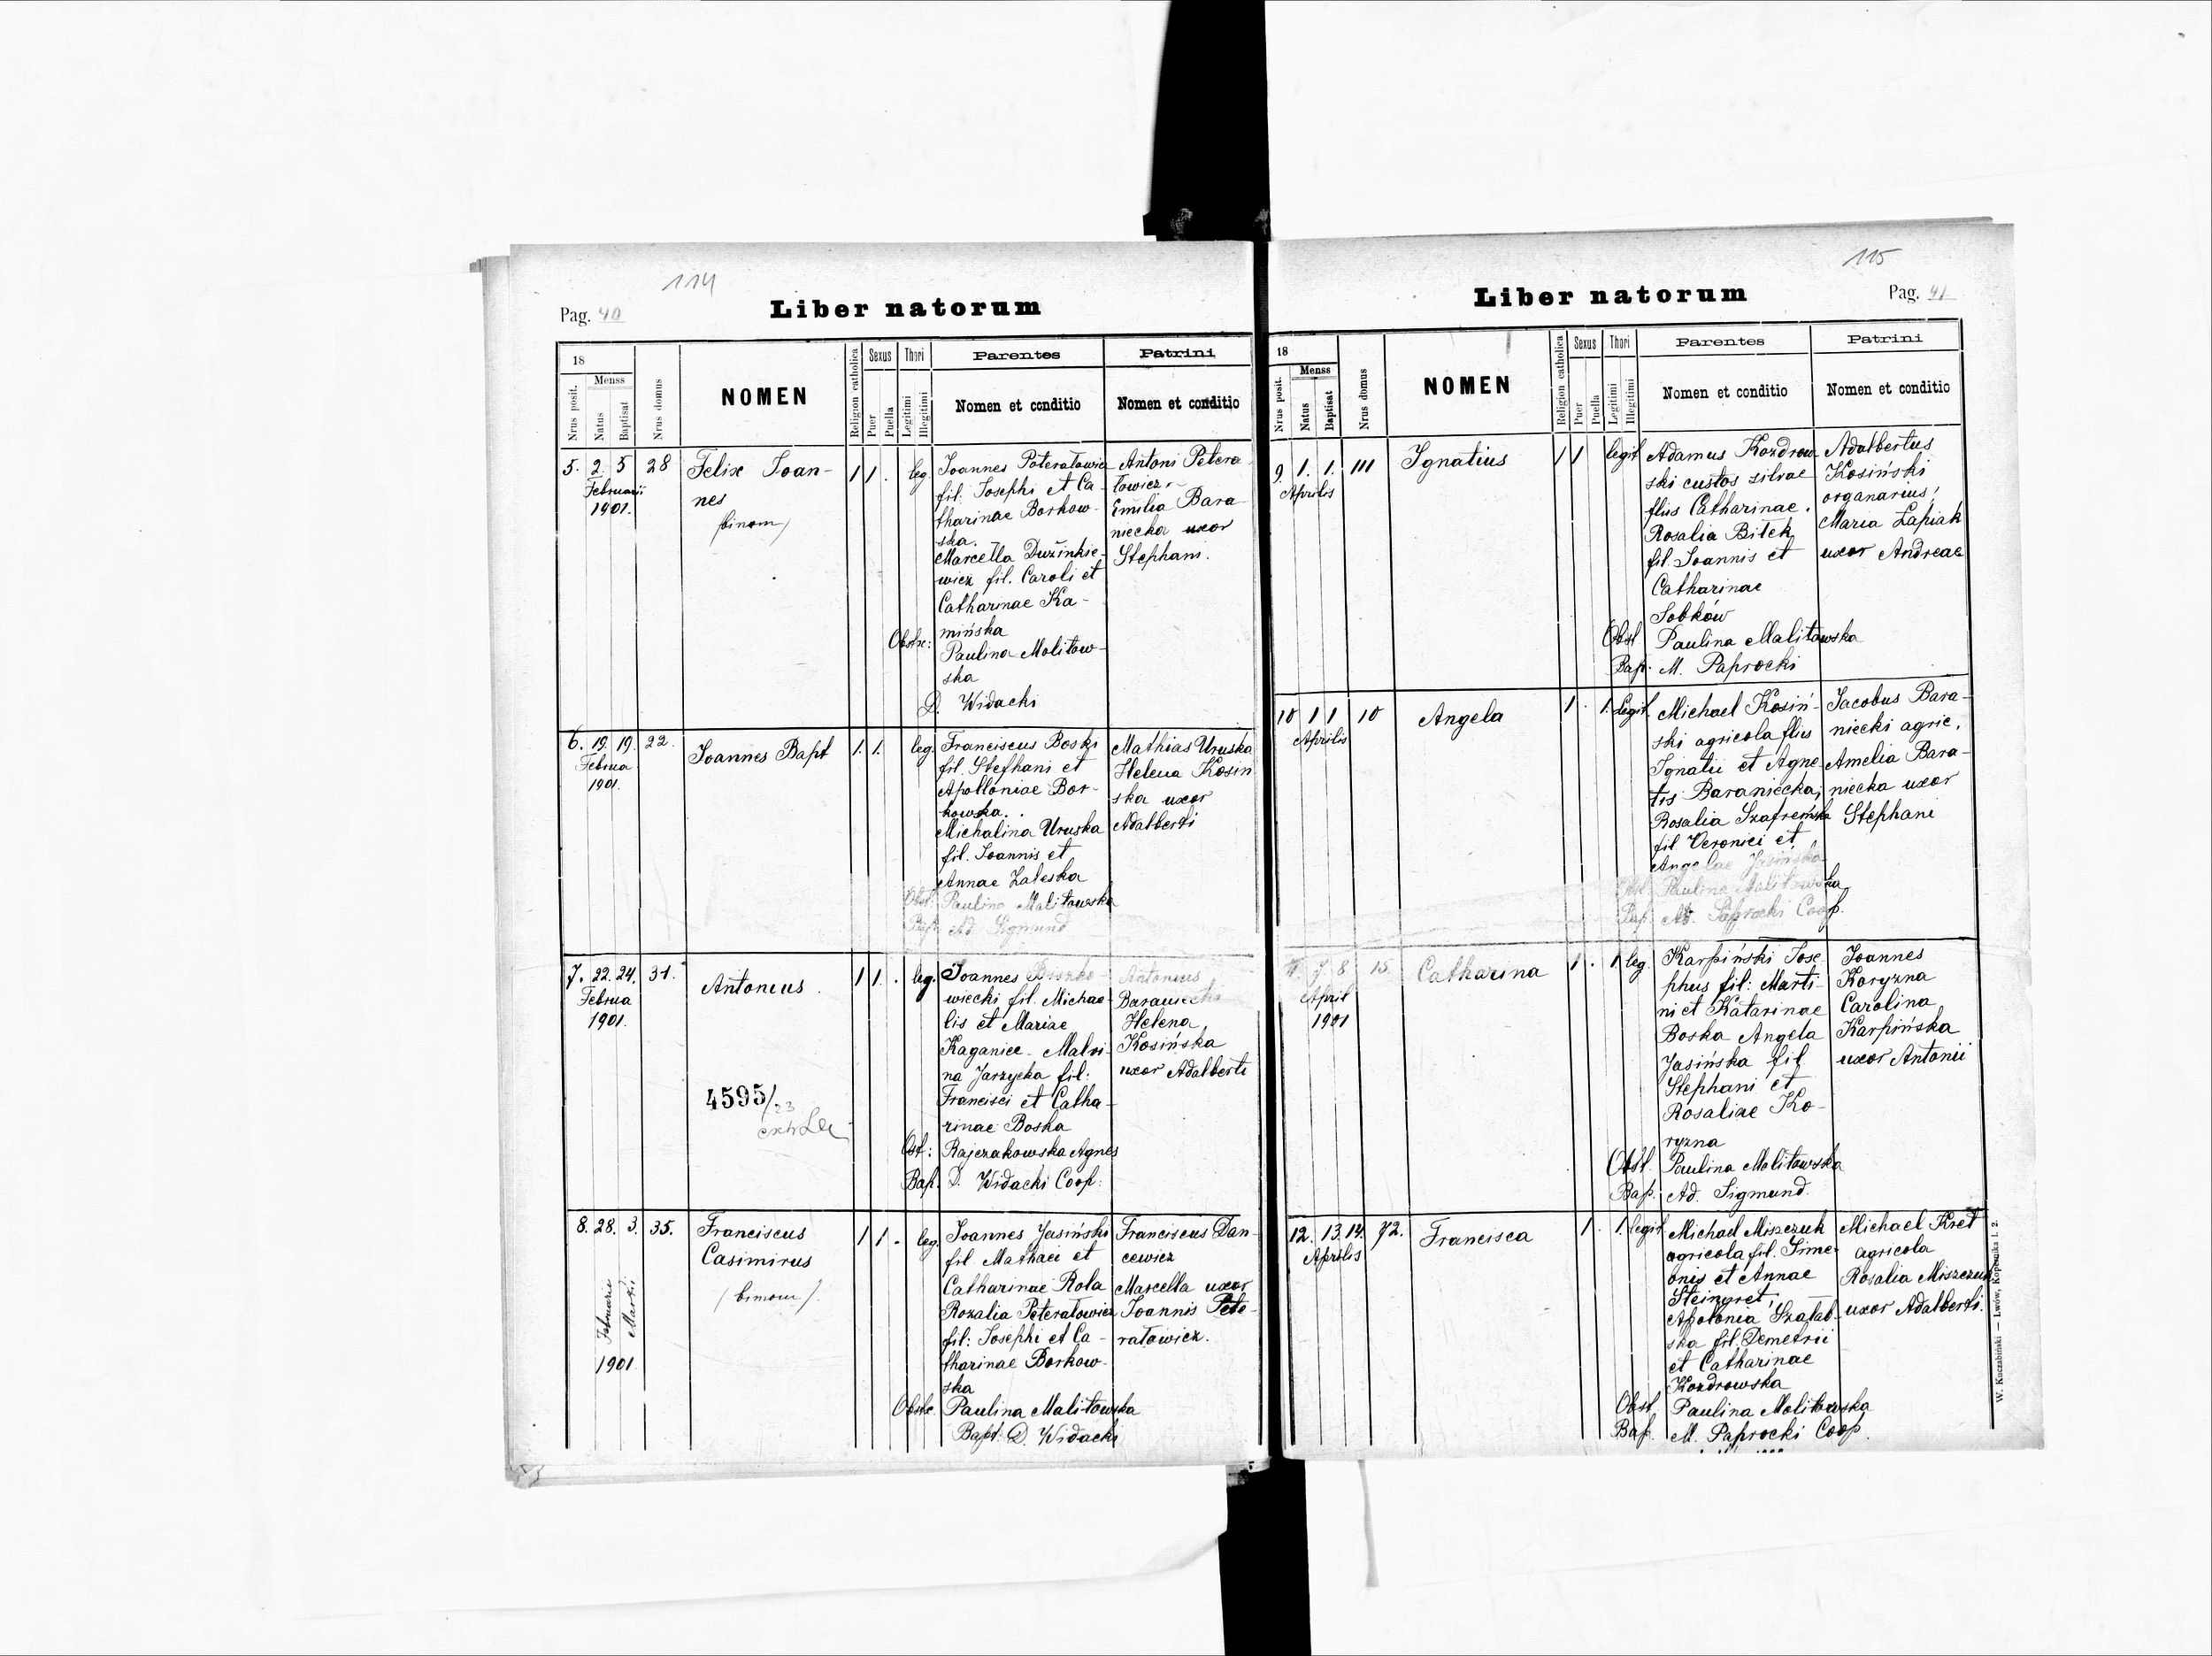 114
Pag. 40
Liber natorum
18
Menss
Nrus posit.
Natus
Baptisat
Nrus domus
NOMEN
Religion catholica
Sexus
Puer
Puella
Thori
Legitimi
Illegitimi
Parentes
Nomen et conditio
Patrini
Nomen et conditio
5. 2. 5 28
Februarii
1901.
Felix Joan-
nes
(binom)
1 1 . leg.
Joannes Poteratowicz
fil. Josephi et Ca-
tharinae Borkow-
ska.
Marcella Duzinkie-
wicz fil. Caroli et
Catharinae Ka-
mińska
Obstr: Paulina Molitow-
ska
D. Widacki
Antoni Petera-
towicz
Emilia Bara-
niecka uxor
Stephani.
6. 19. 19. 22.
Februa
1901.
Joannes Bapt
1. 1. leg.
Franciscus Boski
fil. Stefhani et
Apolloniae Bor-
kowska.
Michalina Uruska
fil. Joannis et
Annae Zaleska
Obst. Paulina Malitowska
Bap. Ad. Sigmund
Mathias Uruska
Helena Kosin
ska uxor
Adalberti
7. 22. 24. 31.
Februa
1901.
Antonius.
4595/23
1 1 . leg.
Joannes Buszko-
wiecki fil. Michae-
lis et Mariae
Kaganiec. Malvi-
na Jarzycka fil:
Francisci et Catha-
rinae Boska
Ost: Rajczakowska Agnes
Bap. D. Widacki Coop:
Antonius
Baraniecki
Helena
Kosińska
uxor Adalberti
8. 28. 3. 35.
Februarii
Martii
1901
Franciscus
Casimirus
(binom).
1 1 . leg
Joannes Jasiński
fil Mathaei et
Catharinae Rola
Rozalia Peteratowicz
fil: Josephi et Ca-
tharinae Borkow-
ska
Obstr. Paulina Malitowska
Bapt. D. Widacki
Franciscus Dan-
cewicz
Marcella uxor
Joannis Pete-
ratowicz.
115
Liber natorum
Pag. 41
18
Menss
Nrus posit.
Natus
Baptisat
Nrus domus
NOMEN
Religion catholica
Sexus
Puer
Puella
Thori
Legitimi
Illegitimi
Parentes
Nomen et conditio
Patrini
Nomen et conditio
9. 1. 1. 111
Aprilis
Ignatius
1 1 legit
Adamus Kozdrow-
ski custos silvae
flius Catharinae.
Rosalia Bitek
fil. Joannis et
Catharinae
Sobków
Obst Paulina Malitowska
Bap. M. Paprocki
Adalbertus
Kosiński
organarius,
Maria Łapiak
uxor Andreae
10 1 1 10
Aprilis
Angela
1 . 1. legit.
Michael Kosiń-
ski agricola flius
Ignatii et Agne-
tis Baraniecka;
Rosalia Szafrańska
fil Veronici et
Angelae Jasińska
Obst. Paulina Malitowska
Bap. M. Paprocki Coop.
Jacobus Bara-
niecki agric.
Amelia Bara-
niecka uxor
Stephani
11. 7. 8 15.
April
1901
Catharina
1 . 1 leg.
Karpiński Jose-
phus fil: Marti-
ni et Katarinae
Boska Angela
Jasińska fil
Stephani et
Rosaliae Ko-
ryzna
Obst. Paulina Molitowska
Bap. Ad. Sigmund.
Joannes
Koryzna
Carolina
Karpińska
uxor Antonii
12. 13. 14. 72.
Aprilis
Francisca
1 . 1. legit
Michael Miszczuk
agricola fil. Sime-
onis et Annae
Steingret;
Apolonia Szatab-
ska fil. Demetrii
et Catharinae
Kozdrowska
Obst. Paulina Molitowska
Bap. M. Paprocki Coop.
Michael Kret
agricola
Rosalia Miszczuk
uxor Adalberti.
W. Kuczabiński — Lwów, Kopernika l. 2.